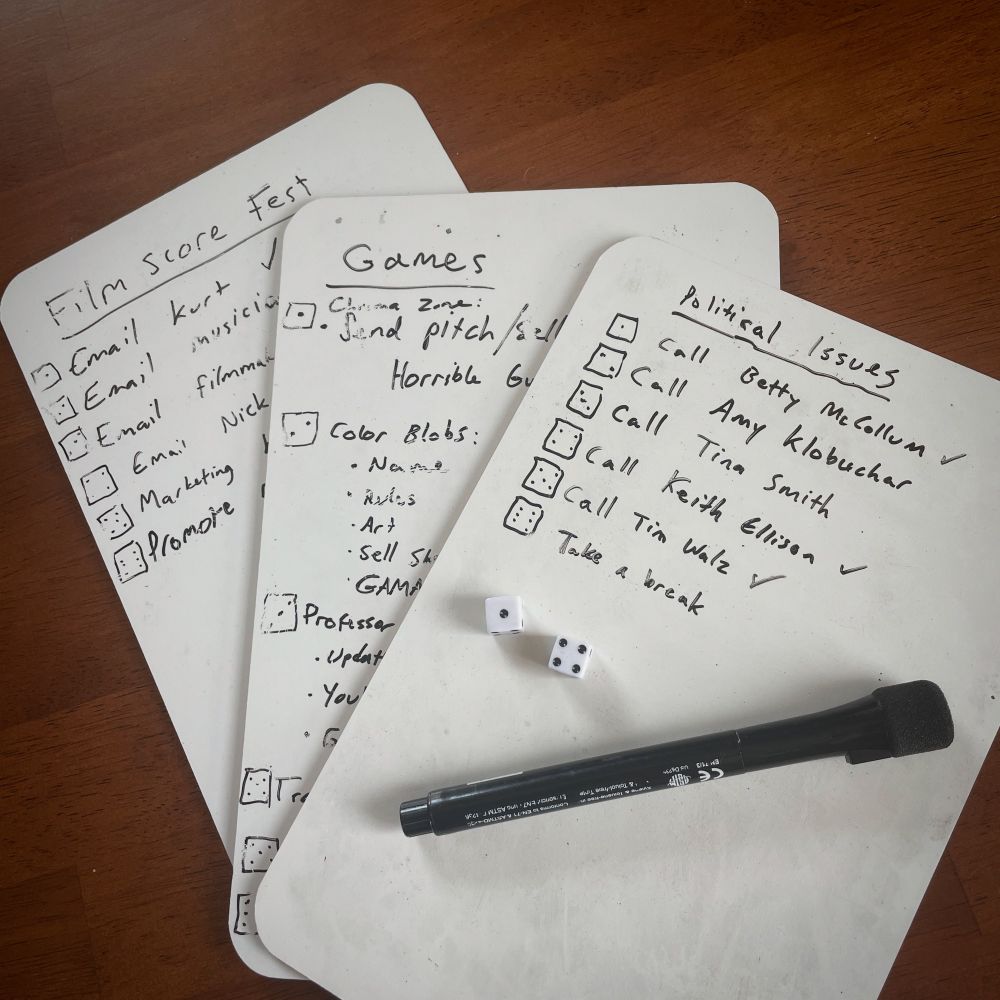 Film Score Fest
Email Kurt ✓
Email
Email filmmak
Email Nick
Marketing
Promote
Games
Chroma Zone:
• Send pitch/sell
Horrible Gu
Color Blobs:
• Name
• Rules
• Art
• Sell She
• GAMA
Professor
• Updat
• You
• G
Tra
Political Issues
Call Betty McCollum ✓
Call Amy Klobuchar
Call Tina Smith
Call Keith Ellison ✓
Call Tim Walz ✓
Take a break
CE
EN 71/3